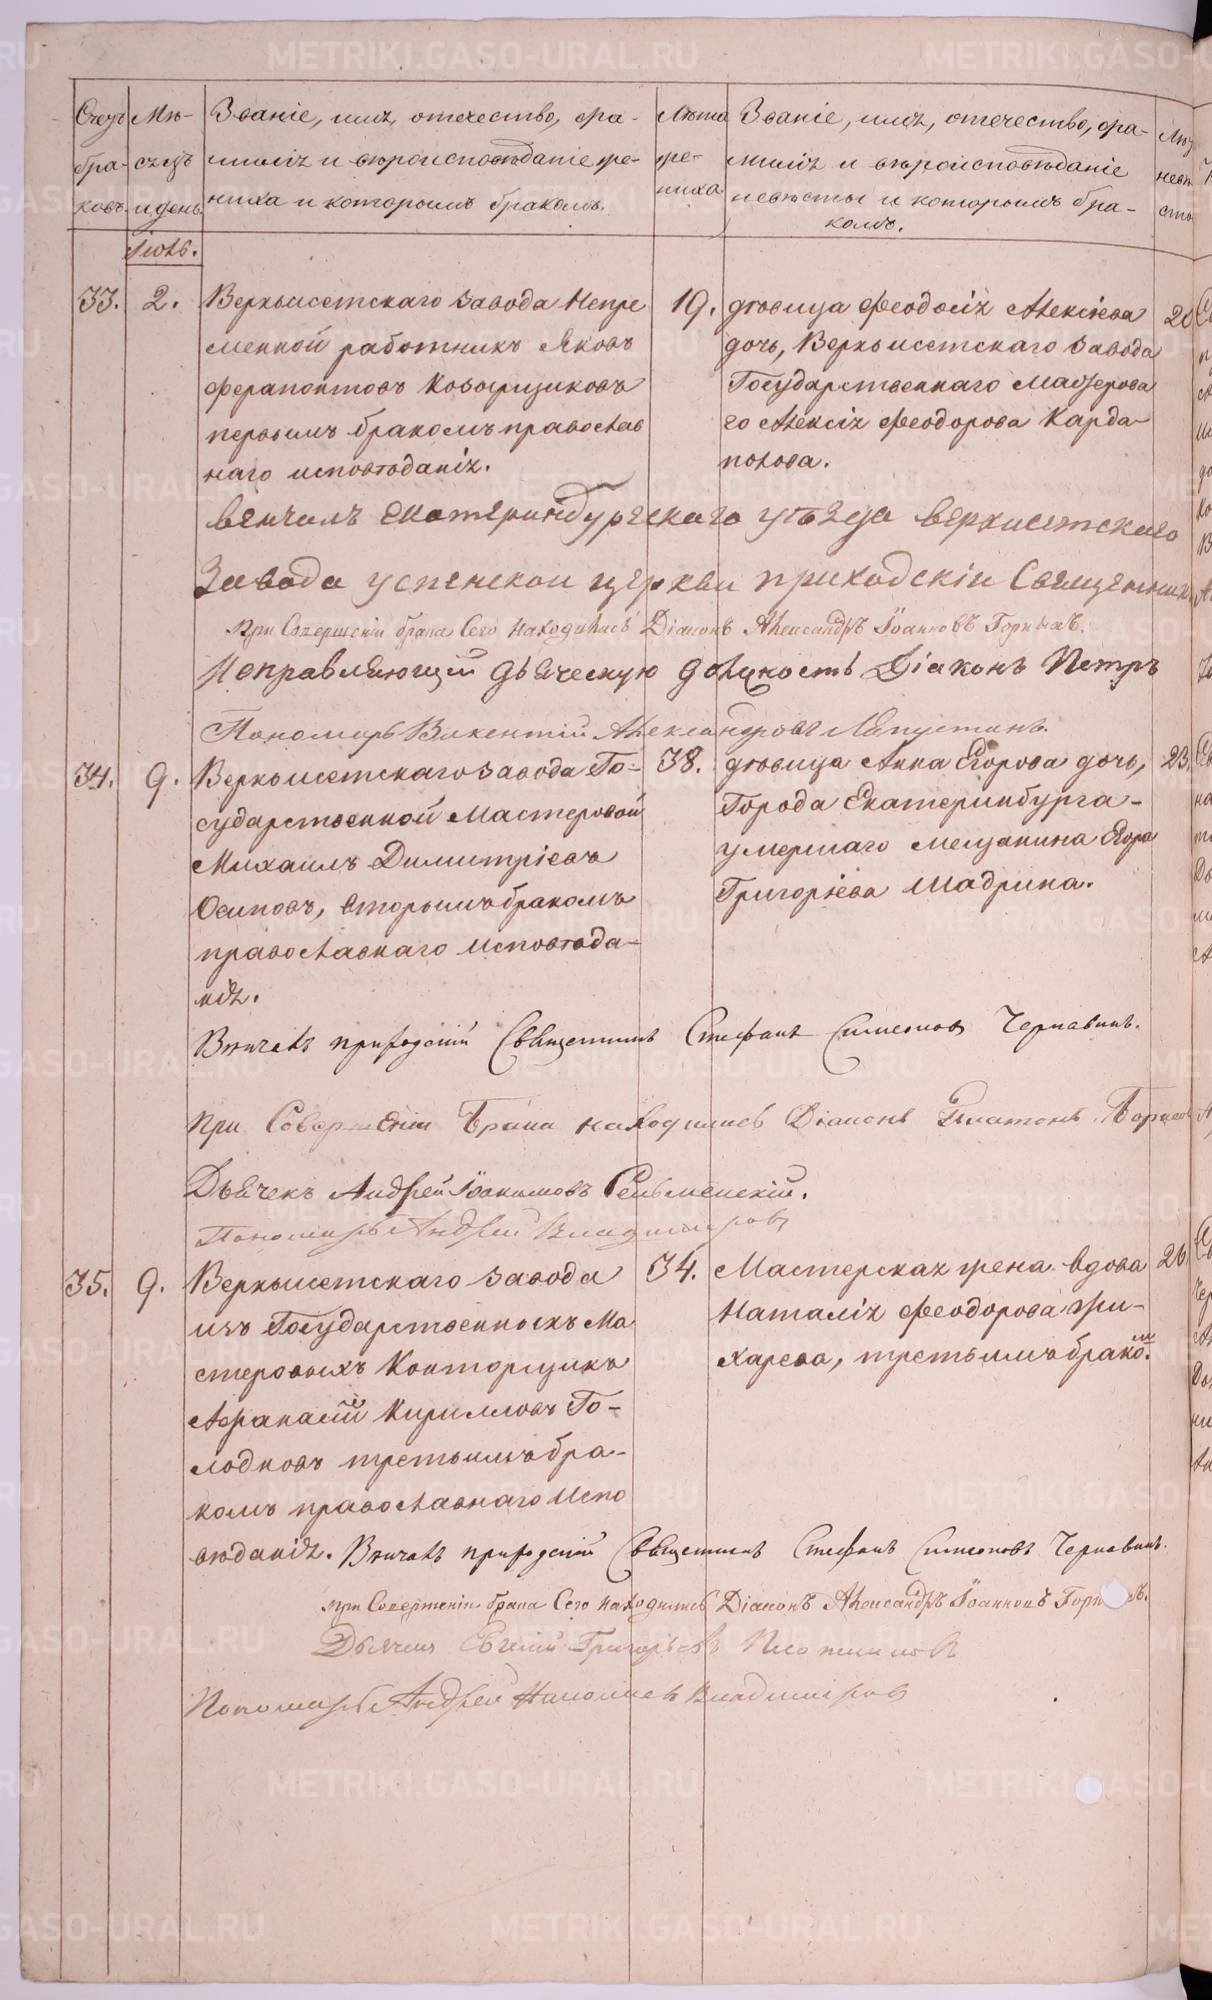 Счетъ браковъ.
Мѣсяцъ и день.
Званіе, имя, отечество, фамилія и вѣроисповѣданіе жениха и которымъ бракомъ.
Лѣта жениха
Званіе, имя, отечество, фамилія и вѣроисповѣданіе невѣсты и которымъ бракомъ.
33. 2.
Верхъисетскаго завода Непре
менной работникъ Яковъ
Ферапонтовъ
первымъ бракомъ православ
наго исповѣданія.
19.
дѣвица Феодосія Алексіева
дочь, Верхъисетскаго завода
Государственнаго Мастерова
го Алексія Феодорова Карда
полова.
20
вѣнчалъ екатеринбургскаго уѣзда верхисетскаго
Завода успенской церкви приходскій Священникъ
при Совершеніи брака Сего находились Діаконъ Александръ Іоанновъ Горныхъ.
Исправляющій дьяческую должность Діаконъ Петръ
Пономарь Викентій Александровъ Лапустинъ.
34. 9.
Верхъисетскаго завода Го=
сударственной Мастеровой
Михаилъ Димитріевъ
Осиповъ, вторымъ бракомъ
православнаго исповѣда-
нія.
38.
дѣвица Анна Егорова дочь,
Города Екатеринбурга-
умершаго мещанина Егора
Григоріева Шадрина.
23.
Вѣнчалъ приходскій Священникъ Стефанъ Симеоновъ Чернавинъ.
при Совершеніи Брака находились Діаконъ Платонъ
Дьячекъ Андрей Іоакимовъ
Пономарь Андрей Владиміровъ
35. 9.
Верхъисетскаго завода
изъ Государственныхъ Ма
стеровыхъ Конторщикъ
Афанасій Кирилловъ Го-
лодновъ третьимъ бра-
комъ православнаго испо
вѣданія.
34.
Мастерская жена вдова
Наталія Феодорова Жи-
харева, третьимъ бракомъ.
26
Вѣнчалъ приходскій Священникъ Стефанъ Симеоновъ Чернавинъ.
при Совершеніи брака Сего находились Діаконъ Александръ Іоанновъ
Дьячекъ Евгеній Григорьевъ
Пономарь Андрей Владиміровъ
METRIKI.GASO-URAL.RU